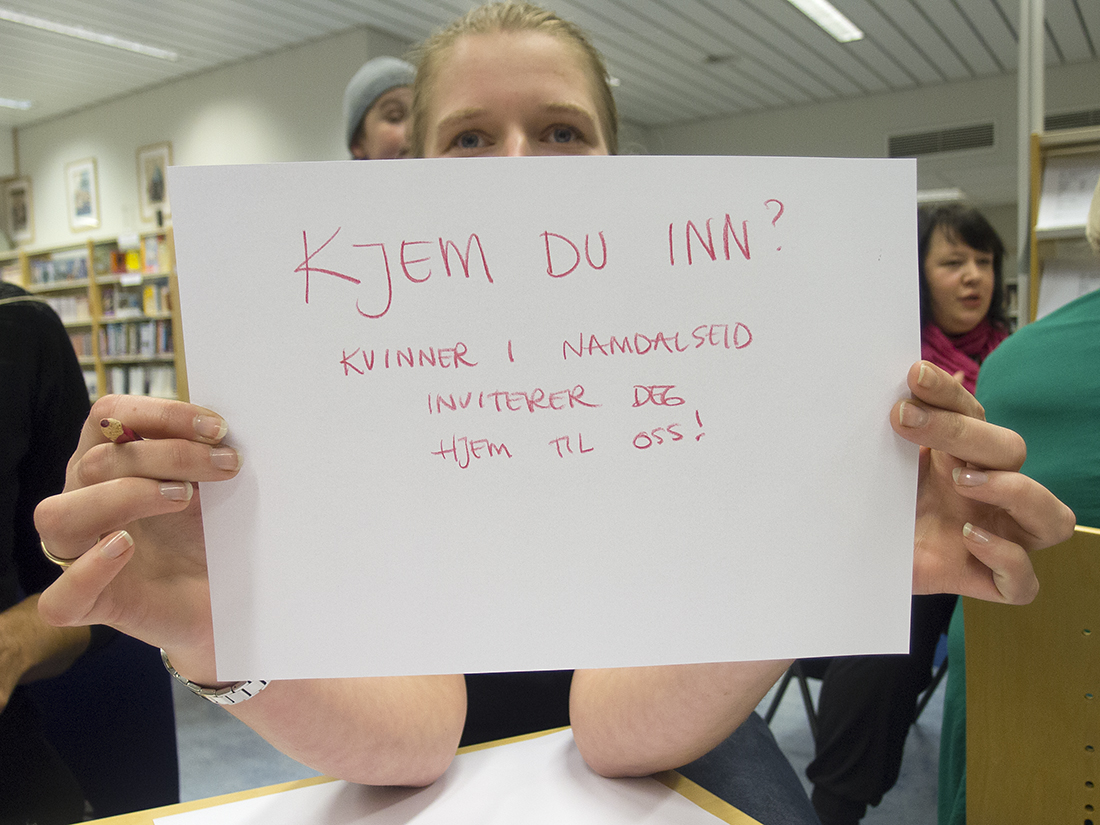 KJEM DU INN?
KVINNER I NAMDALSEID
INVITERER DEG
HJEM TIL OSS!